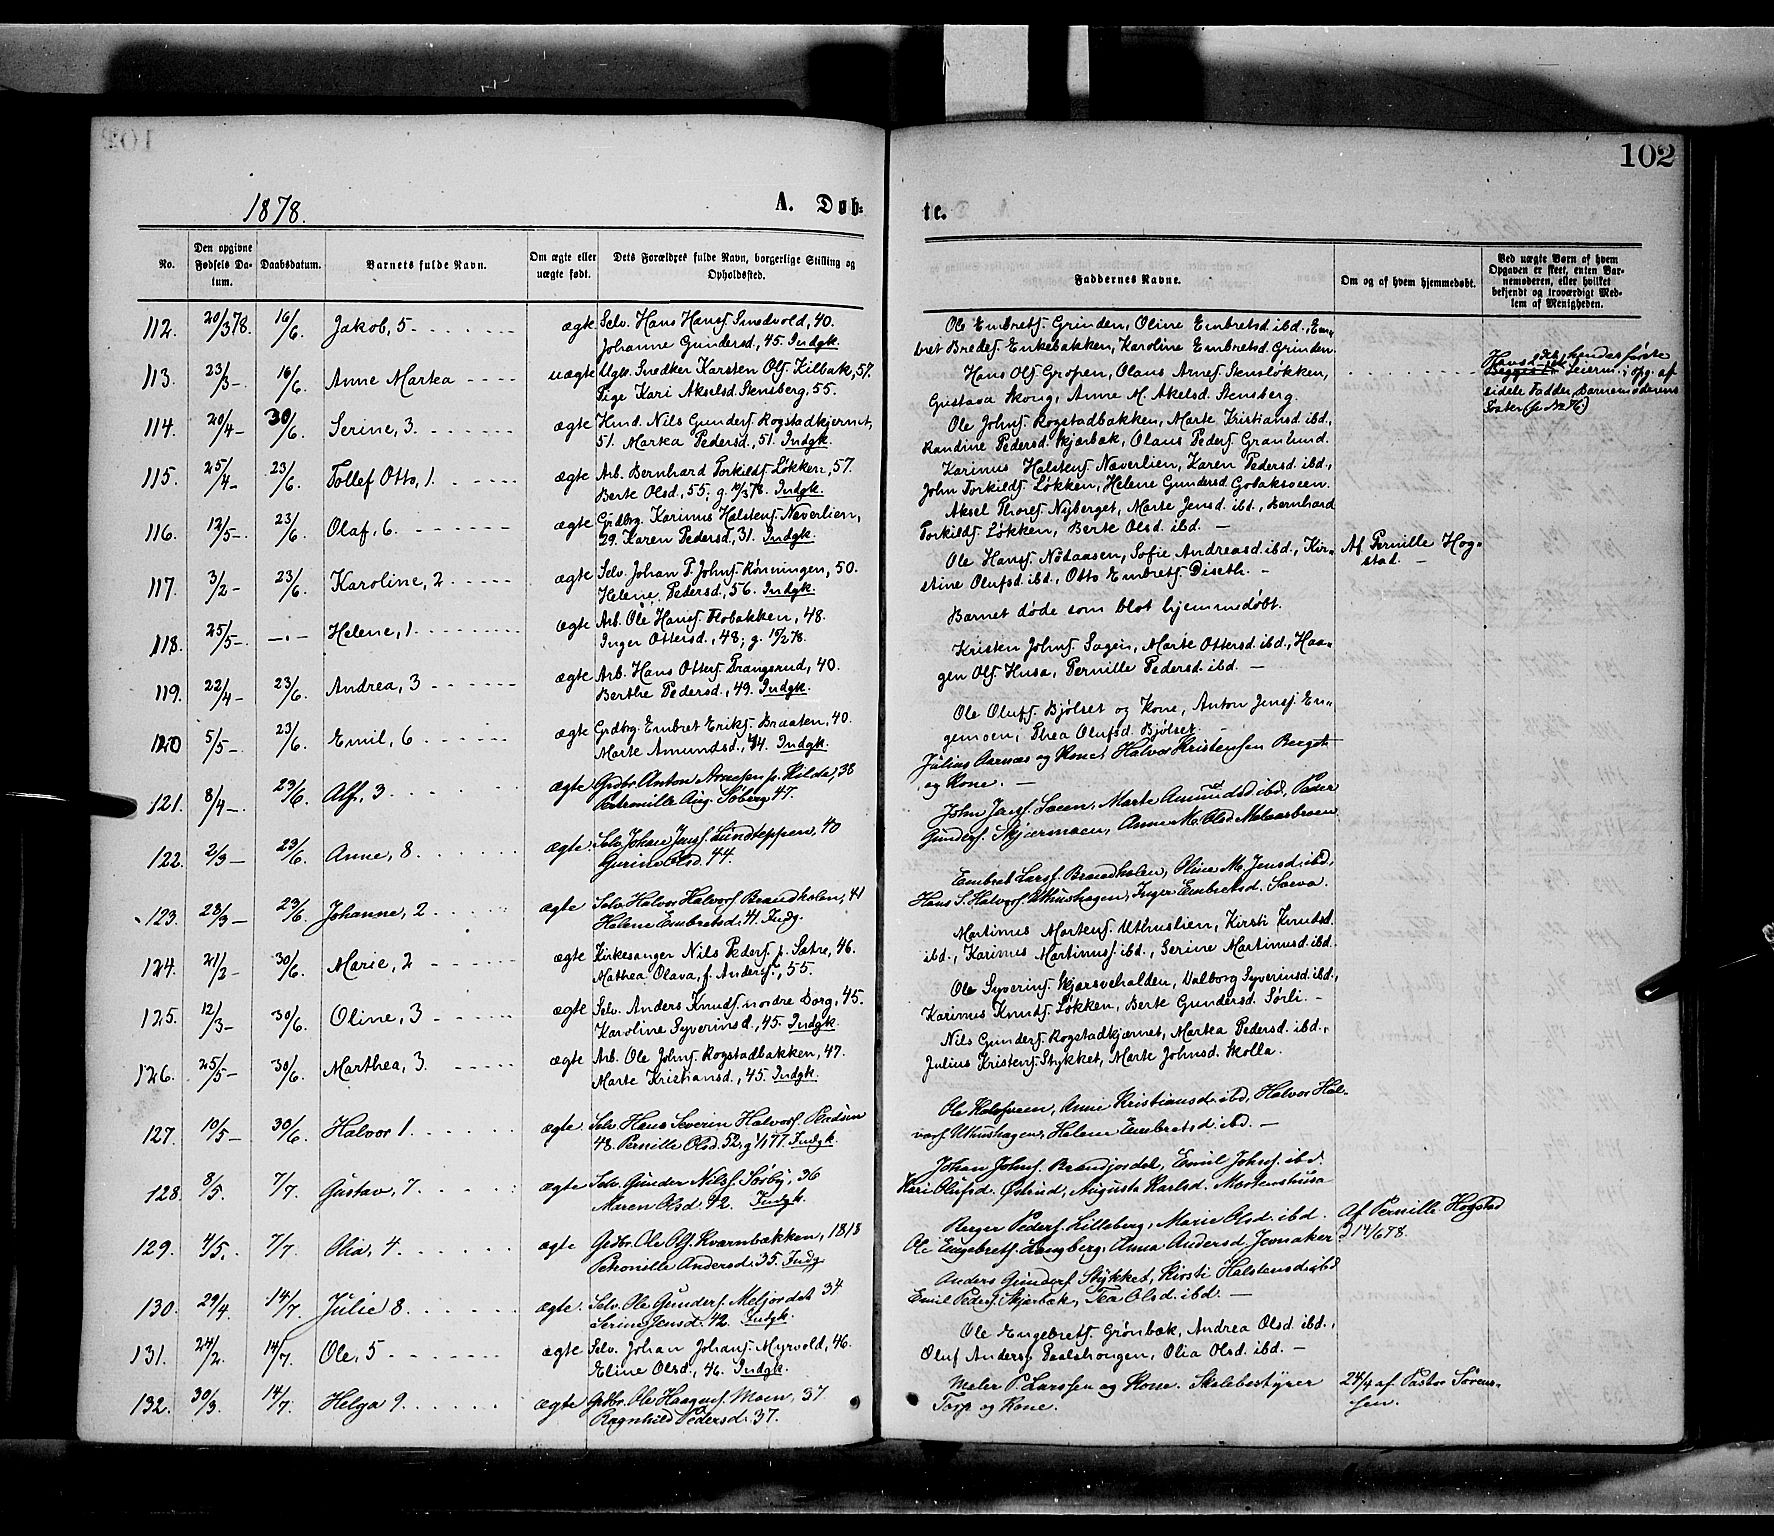 102
1878.
A. Døb-
te.
No.
Den opgivne Fødsels Datum.
Daabsdatum.
Barnets fulde Navn.
Om ægte eller uægte født.
Dets Forældres fulde Navn, borgerlige Stilling og Opholdssted.
Faddernes Navne.
Om og af hvem hjemmedøbt.
Ved uægte Børn af hvem Opgaven er skeet, enten Barnemoderen, eller hvilket bekjendt og troværdigt Medlem af Menigheden.
112. 20/3 78. 16/6 Jakob, 5 ægte Selv. Hans Hansf. Smedvold, 40.
Johanne Gundersd., 45. Indgk.
Ole Embretsf. Grinden, Oline Embretsd. ibd., Em-
bret Bredes. Enkebakken, Karoline Embretsd. Grinden.
113. 23/3 - 16/6. Anne Martea uægte Ugb. Snedker Karsten Olsf. Kilbak, 57.
Pige Kari Akselsd. Stensberg, 55.
Hans Olsf. Gropen, Olaus Arnesf. Stensløkken,
Gustava Skoug, Anne M. Akelsd. Stensberg.
hendes første
Leierm.; opg. af
sidste Fadder, Barnemoderens
Søster
114. 20/4 - 30/6. Serine, 3. ægte Hmd. Nils Gundersf. Rogstadkjernet,
51. Martea Pedersd., 51. Indgk.
Ole Johnsf. Rogstadbakken, Marte Kristiansd. ibd.,
Randine Pedersd. Skjærbæk, Olaus Pedersf. Granlund.
115. 25/4 - 23/6. Tollef Otto, 1. ægte Arb. Bernhard Torkildsf. Løkken, 57.
Berte Olsd., 55; g. 10/3 78. Indgk.
Karinus Halstensf. Naverlien, Karen Pedersd. ibd.,
John Torkildsf. Løkken, Helene Gundersd. Gobaksveen.
116. 12/5 -. 23/6. Olaf, 6. ægte Grdbrg. Karinus Halstensf. Naverlien,
29. Karen Pedersd., 31. Indgk.
Aksel Thoresf. Nyberget, Marte Jensd. ibd., Bernhard
Torkildsf. Løkken, Berte Olsd. ibd. —
117. 3/2 - 23/6. Karoline, 2 ægte Selv. Johan P. Johnsf. Rønningen, 50.
Helene Pedersd., 56. Indgk.
Ole Hansf. Nodaasen, Sofie Andreasd. ibd., Kir-
stine Olufsd. ibd., Otto Embretsf. Diseth. -
Af Pernille Hog-
stad. —
118. 25/5 -. -.- Helene, 1. ægte Arb. Ole Hansf. Flobakken, 48.
Inger Ottersd., 48; g. 10/2 78.
Barnet døde som blot hjemmedøbt.
119. 22/4 - 23/6. Andrea, 3 ægte Arb. Hans Ottersf. Trangsrud, 40.
Berthe Pedersd., 49. Indgk.
Kristen Johnsf. Sagen, Marte Ottersd. ibd., Haa-
gen Olsf. Husa, Pernille Pedersd. ibd. —
120 5/5 -. 23/6. Emil, 6 ægte Grdbrg. Embret Eriksf. Braaten, 40.
Marte Amundsd., 44. Indgk.
Ole Olufsf. Bjølset og Kone, Anton Jensf. En-
gemoen, Thea Olufsd. Bjølset.
121. 8/4 -. 23/6. Alf, 3 ægte Grdbr. Anton Arnesen p. Kilde, 38
Petronille Aug. Soberg 47.
Julius Aarnæs og Kone, Halvor Kristensen Bergst.
og Kone. —
122. 2/3 — 23/6. Anne, 8. ægte. Selv. Johan Jensf. Lundteppen, 40
Gurine Olsd. 44.
John Jensf. Soen, Marte Amundsd. ibd., Peder
Gundersf. Skjærmoen, Anne M. Olsd. Melaasbroen
123. 23/3 — 23/6. Johanne, 2 ægte Selv. Halvor Halvorsf. Brændholen, 41
Helene Embretsd. 41. Indg.
Embret Larsf. Brændholen, Oline M. Jensd. ibd.,
Hans S. Halvorsf. Uthushagen, Inger Embretsd. Sorva.
124. 21/2 — 30/6. Marie, 2 ægte Kirkesanger Nils Pedersf. p. Sætre, 46.
Mathea Olava, f. Andersf., 55.
Martinus Mortensf. Uthuslien, Kirsti Knudsd.
ibd., Karinus Martinusf. ibd., Serine Martinusd. ibd.
125. 12/3 - 30/6. Oline, 3 ægte Selv. Anders Knudsf. nordre Borg, 45.
Karoline Syverinsd., 45. Indgk.
Ole Syverinsf. Skjærsvehalden, Valborg Syverinsd. ibd.,
Karinus Knudsf. Løkken, Berte Gundersd. Sørli. -
126. 25/5 — 30/6. Marthea, 3. ægte Arb. Ole Johnsf. Rogstadbakken, 47.
Marte Kristiansd., 45. Indgk.
Nils Gundersf. Rogstadkjærnet, Martea Pedersd. ibd.,
Julius Kristensf. Stykket, Marte Johnsd. Skolla.
127. 10/5 — 30/6. Halvor 1. ægte. Selv. Hans Severin Halvorsf.
48. Pernille Olsd. 52, g. 77. Indgk.
Ole Anne Kristiansd. ibd., Halvor Hal-
vorsf. Uthushagen, Helene Embretsd. ibd. —
128. 8/5. 7/7. Gustav, 7. ægte Selv. Gunder Nilsf. Søsby, 36
Maren Olsd. 42. Indgk.
Johan Johnsf. Brændjordet, Emil Johnsf. ibd.
Kari Olufsd. Østrud, Augusta Karlsd. Mortenshusa
129. 4/5. 7/7. Olia, 4. ægte Grdbr. Ole Olsf. Kværnbækken, 1818
Petronelle Andersd. 35. Indg.
Berger Pedersf. Lilleberg, Marie Olsd. ibd.
Ole Engebretsf. Langberg, Anna Andersd. Jevnaker
Af Pernille Hogstad
14/6 78.
130. 29/4. 14/7. Julie 8. ægte. Selv. Ole Gundersf. Meljordet 34
Serine Jensd. 42. Indgk.
Anders Gundersf. Stykket, Kirsti Halstensd. ibd
Emil Pedersf. Skjærbæk, Tea Olsd. ibd. —
131. 24/2. 14/7. Ole, 5 ægte Selv. Johan Johansf. Myrvold, 46.
Eline Olsd., 46. Indgk.
Ole Engebretsf. Grønbæk, Andrea Olsd. ibd.,
Oluf Andersf. Paalshougen, Olia Olsd. ibd. —
132. 30/3. 14/7. Helga 9. ægte Grdbr. Ole Haagensf. Moen, 37
Ragnhild Pedersd. 37.
Maler P. Larssen og Kone. Skolebestyrer
Torp og Kone.
24/4 af Pastor Sørens-
sen.